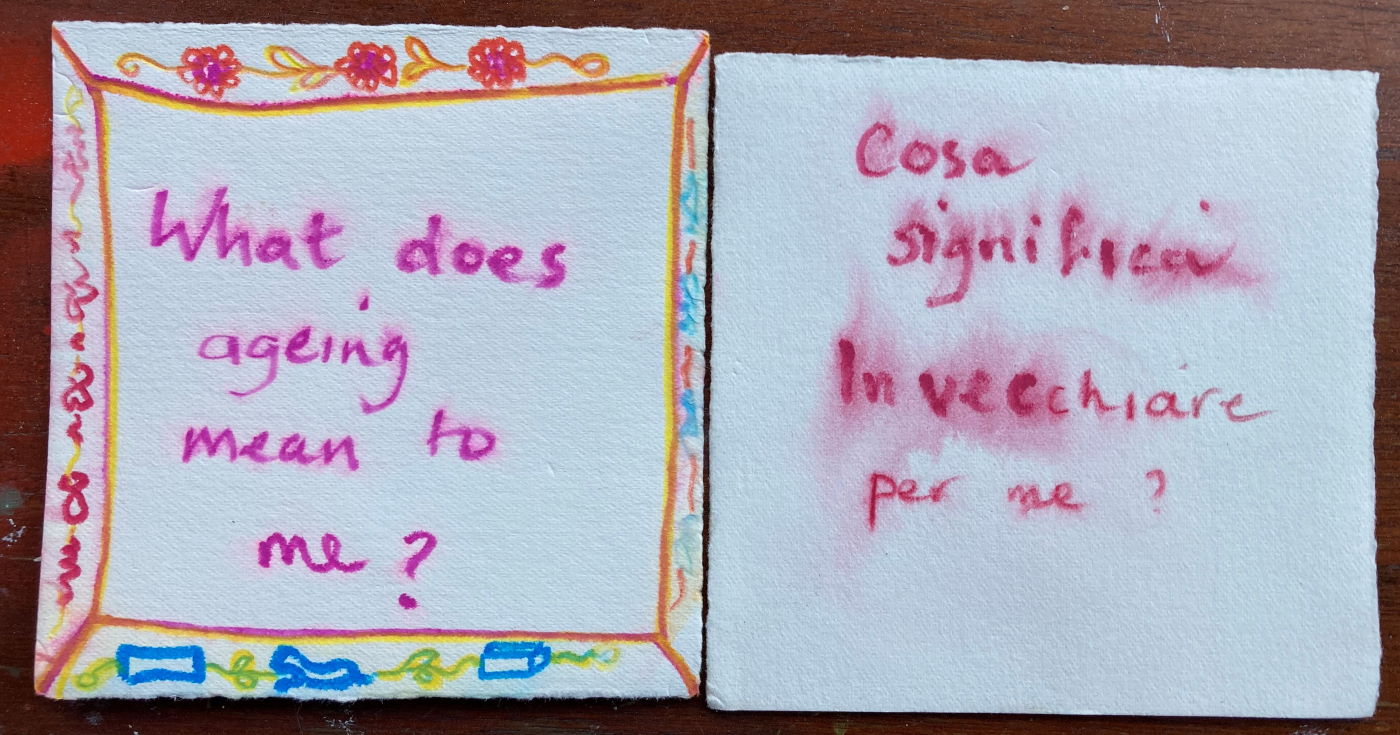 What does
ageing
mean to
me?
Cosa
significa
Invecchiare
per me ?